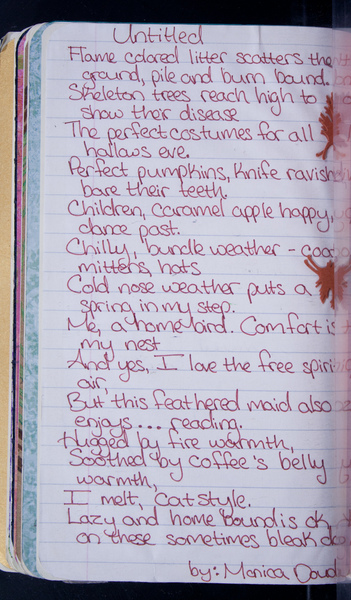 Untitled
Flame colored litter scatters the
ground, pile and burn bound.
Skeleton trees reach high to
show their disease
The perfect costumes for all
hallows eve.
Perfect pumpkins, knife ravished
bare their teeth.
Children, caramel apple happy,
dance past.
Chilly, bundle weather - cocoa
mittens, hats
Cold nose weather puts a
spring in my step.
Me, a homebird. Comfort is
my nest
And yes, I love the free spirit
air,
But this feathered maid also
enjoys.... reading.
Hugged by fire warmth,
Soothed by coffee's belly
warmth,
I melt, Cat style.
Lazy and home bound is ok
on these sometimes bleak
by: Monica